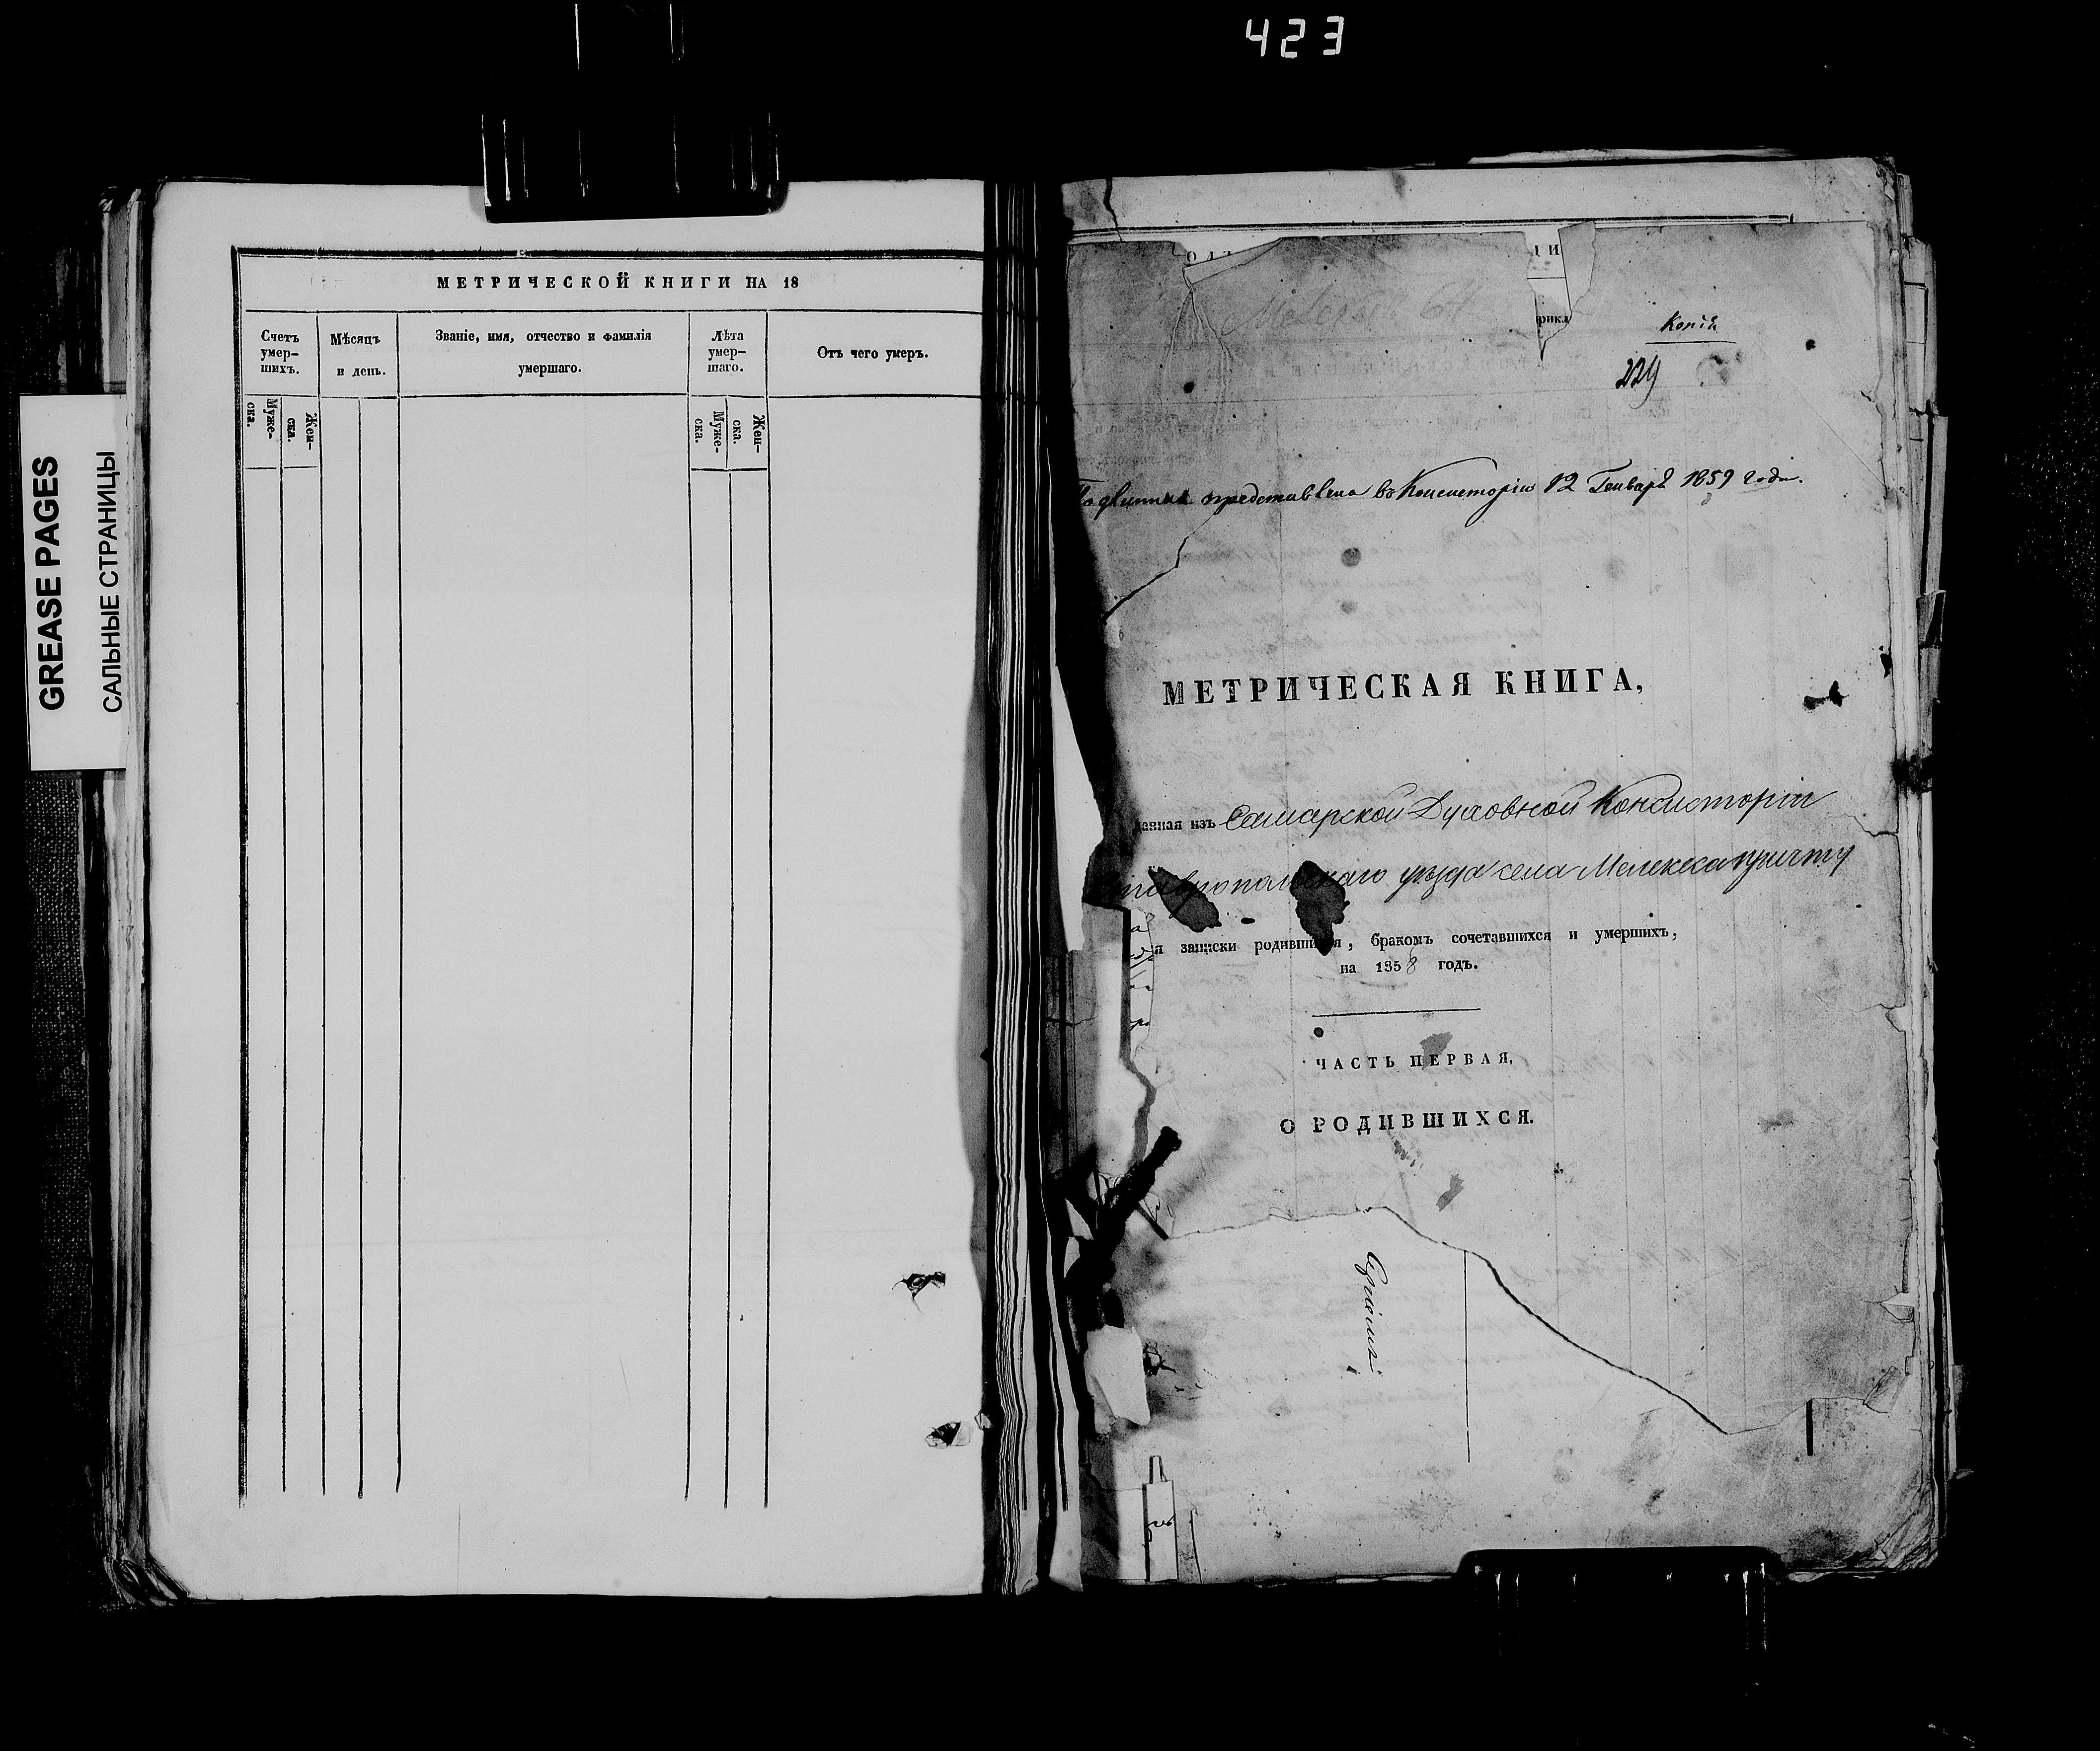 423
GREASE PAGES
САЛЬНЫЕ СТРАНИЦЫ
МЕТРИЧЕСКОЙ КНИГИ НА 18
Счетъ умер-шихъ.
Мѣсяцъ и день.
Званіе, имя, отчество и фамилія умершаго.
Лѣта умер-шаго.
Отъ чего умеръ.
Муже-ска.
Жен-ска.
Муже-ска.
Жен-ска.
рикл
Копія
229
представлена въ Консисторію 12 Генваря 1859 года.
МЕТРИЧЕСКАЯ КНИГА,
анная изъ Самарской Духовной Консисторіи
Ставропольскаго уѣзда села Мелекеса причту
я записки родившихся, бракомъ сочетавшихся и умершихъ,
на 1858 годъ.
ЧАСТЬ ПЕРВАЯ,
О РОДИВШИХСЯ.